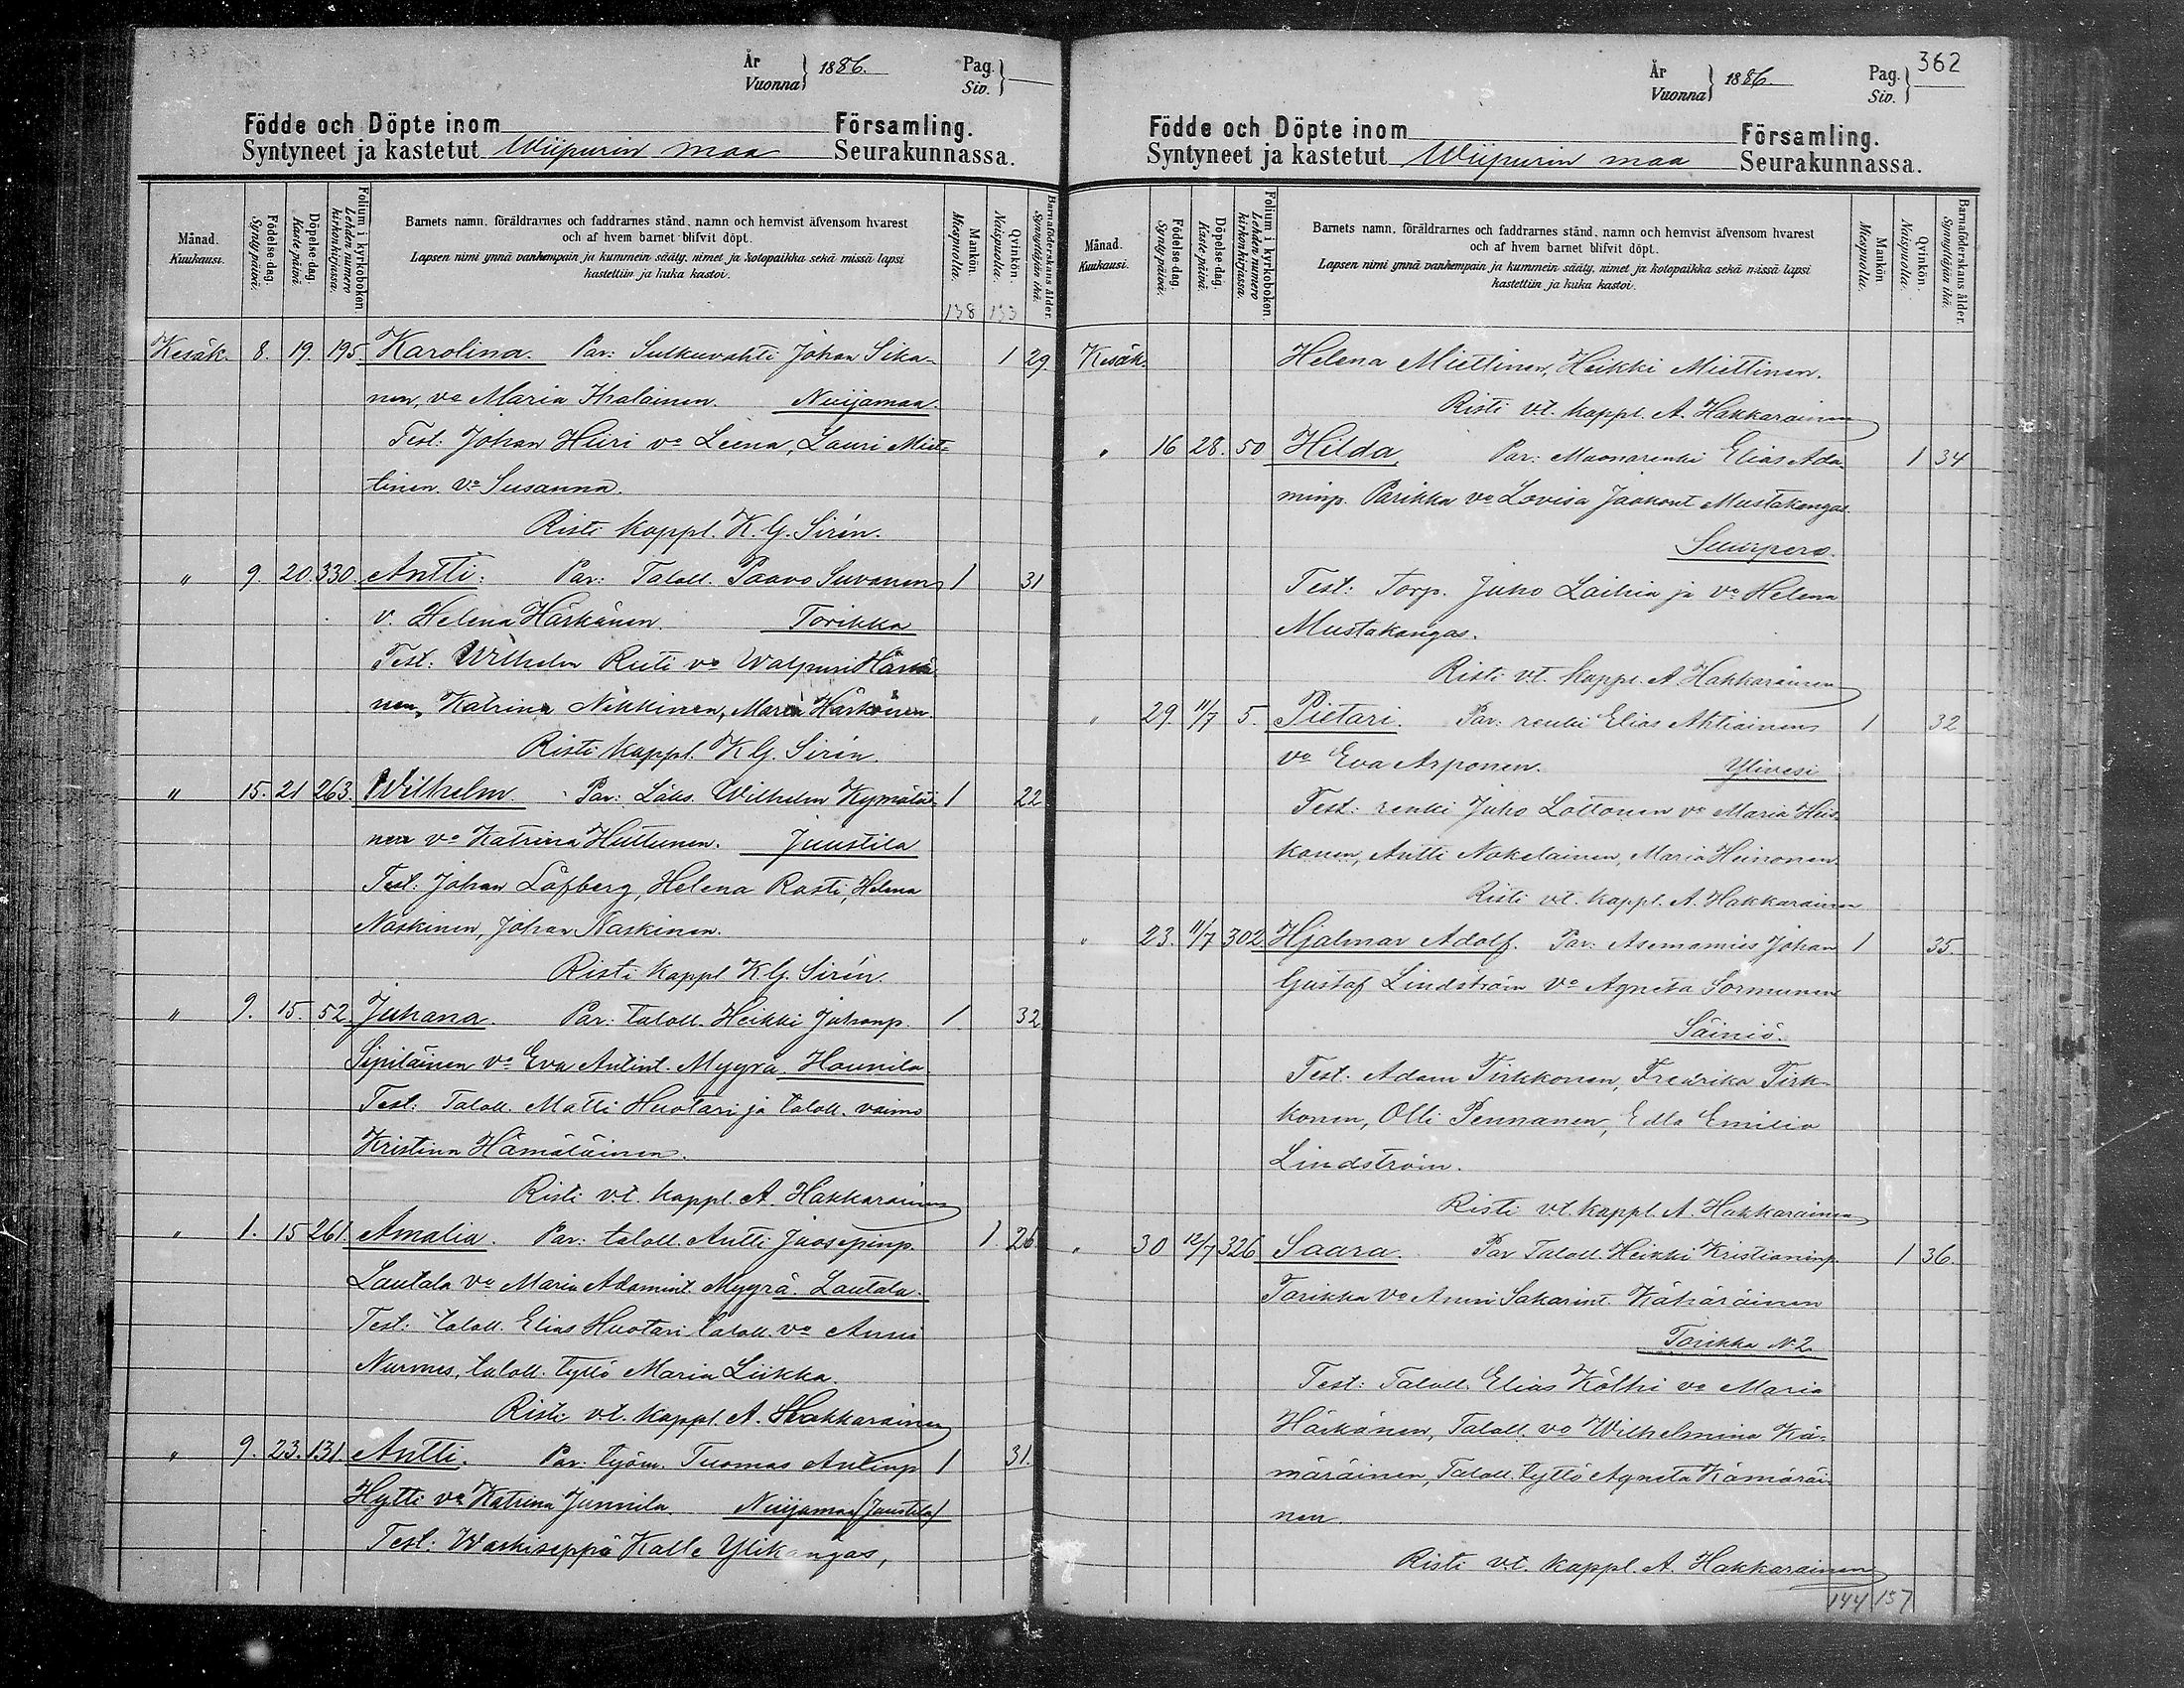 År
Vuonna } 1886.
Pag.
Siv. }
Födde och Döpte inom Församling.
Syntyneet ja kastetut Wiipurin maa Seurakunnassa.
Månad.
Kuukausi.
Födelse-dag.
Synty-päivä.
Döpelse-dag.
Kaste-päivä.
Folium i kyrkoboken.
Lehden numero kirkonkirjassa.
Barnets namn, föräldrarnes och faddrarnes stånd, namn och hemvist äfvensom hvarest
och af hvem barnet blifvit döpt.
Lapsen nimi ynnä vanhempain ja kummein sääty, nimet ja kotopaikka sekä missä lapsi
kastettiin ja kuka kastoi.
Mankön.
Miespuolta.
Qvinkön.
Naispuolta.
Barnaföderskans ålder.
Synnyttäjän ikä.
138 133
Kesäk. 8. 19. 195 Karolina. Par: Sulkuvahti Johan Sika- 1 29
nen, vo Maria Ihalainen. Nuijamaa.
Test: Johan Hiiri vo Leena, Lauri Miet-
tinen vo Susanna.
Risti kappl. K. G. Sirén.
" 9. 20. 330 Antti. Par: Taloll. Paavo Suvanen 1 31
v. Helena Härkönen. Torikka
Test: Wilhelm Ruti vo Walpuri Härkö-
nen, Katrina Nikkinen, Maria Härkönen.
Risti kappl. K G. Sirén.
" 15. 21 263. Wilhelm. Par: Läks. Wilhelm Kymäläi- 1 22
nen vo Katrina Huttunen. Juustila
Test: Johan Löfberg, Helena Rasti, Helena
Naskinen, Johan Naskinen.
Risti kappl K G. Sirén.
" 9. 15. 52. Juhana. Par: taloll. Heikki Juhonp. 1. 32
Sipiläinen vo Eva Antint. Myyrä. Hounila.
Test: Taloll. Matti Huotari ja taloll. vaimo
Kristina Hämäläinen.
Risti v.t. kappl. A. Hakkarainen
" 1. 15 261. Amalia. Par: taloll. Antti Juosepinp. 1. 26
Lautala vo Maria Adamint. Myyrä. Lautala.
Test: taloll. Elias Huotari taloll. vo Anni
Nurmes, taloll. tyttö Maria Liikka.
Risti v.t. kappl. A. Hakkarainen
" 9. 23. 131. Antti. Par. työm. Tuomas Antinp 1 31.
Hytti vo Katrina Junnila. Nuijamaa (Juustila)
Test: Waskiseppä Kalle Ylikangas,
362
År
Vuonna } 1886.
Pag.
Siv. }
Födde och Döpte inom Församling.
Syntyneet ja kastetut Wiipurin maa Seurakunnassa.
Månad.
Kuukausi.
Födelse-dag.
Synty-päivä.
Döpelse-dag.
Kaste-päivä.
Folium i kyrkoboken.
Lehden numero kirkonkirjassa.
Barnets namn, föräldrarnes och faddrarnes stånd, namn och hemvist äfvensom hvarest
och af hvem barnet blifvit döpt.
Lapsen nimi ynnä vanhempain ja kummein sääty, nimet ja kotopaikka sekä missä lapsi
kastettiin ja kuka kastoi.
Mankön
Miespuolta.
Qvinkön.
Naispuolta.
Barnaföderskans ålder.
Synnyttäjän ikä.
Kesäk. Helena Miettinen, Heikki Miettinen.
Risti v.t. kappl. A. Hakkarainen
" 16 28. 50 Hilda. Par: Muonarenki Elias Ada- 1 34
minp. Parikka vo Lovisa Jaakont Mustakangas.
Suurpero.
Test: Torp. Juho Laihia ja vo Helena
Mustakangas.
Risti v.t. kappl. A. Hakkarainen
" 29. 11/7 5. Pietari. Par: renki Elias Ahtiainen 1 32
vo Eva Arponen. Ylivesi
Test: renki Juho Lottonen vo Maria Heis-
kanen, Antti Nokelainen, Maria Heinonen.
Risti v.t. kappl. A. Hakkarainen
" 23. 11/7 302 Hjalmar Adolf. Par: Asemamies Johan 1 35.
Gustaf Lindström vo Agneta Sormunen
Säiniö.
Test: Adam Tirkkonen, Fredrika Tirk-
konen, Olli Pennanen, Edla Emilia
Lindström.
Risti v.t. kappl. A. Hakkarainen
" 30 12/7 326 Saara. Par Taloll. Heikki Kristianinp. 1 36.
Torikka vo Anni Sakarint. Kähäräinen
Torikka N 2.
Test: Taloll. Elias Kölhi vo Maria
Härkönen, Taloll. vo Wilhelmina Kä-
märäinen, Taloll. tyttö Agneta Kämäräi-
nen
Risti v.t. kappl. A. Hakkarainen
144 137